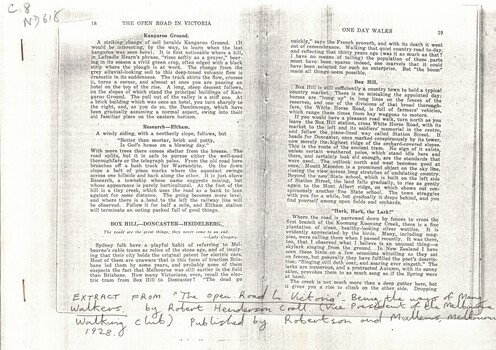 C 8
ND618
18 THE OPEN ROAD IN VICTORIA
Kangaroo Ground.
A striking change of soil heralds Kangaroo Ground. (It
would be interesting, by the way, to learn when the last
kangaroo was seen here). It is first noticeable where a hill,
in Lafcadio Hearn's phrase, "rises softly as a prayer," bear-
ing in its season a vivid green crop, often edged with a black
strip where the plough is at work. The change from the
grey alluvial-looking soil to this deep-toned volcanic flow is
dramatic in its suddenness. The track skirts the flow, crosses
it, turns a corner, and almost at once you are at the old
hotel on the top of the rise. A long, steep descent follows,
on the slopes of which stand the principal buildings of Kan-
garoo Ground. The pull out of the valley is a stiff one. At
a brick building which was once an hotel, you turn sharply to
the right and, as you do so, the Dandenongs, which have
been gradually assuming a normal aspect, swing into their
old familiar place on the eastern horizon.
Research—Eltham.
A windy siding, with a northerly slope, follows, but
"Better than mortar, brick and putty,
Is God's house on a blowing day."
With more trees there comes shelter from the breeze. The
road splits, but it is safe to pursue either the well-used
thoroughfare or the telegraph poles. From the old road here
branches off a back track for Warrandyte. Down the long
slope a belt of pine marks where the aqueduct swings
across one hillside and back along the other. It is just above
Research, a township whose name suggests mining, but
whose appearance is purely horticultural. At the foot of the
hill is a tiny creek, which uses the road as a bank to lean
against for some distance. The going becomes more level
and where there is a bend to the left the railway line will
be observed. Follow it for half a mile, and Eltham station
will terminate an outing packed full of good things.
BOX HILL—DONCASTER—HEIDELBERG.
The roads are the great things; they never come to an end.
Sydney folk have a playful habit of referring to Mel-
bourne's cable trams as relics of the stone age, and of imply-
ing that their city holds the original patent for electric cars.
Most of them are unaware that in this form of traction Bris-
bane led them by some years, and probably not one of them
suspects the fact that Melbourne was still earlier in the field
than Brisbane. How many Victorians, even, recall the elec-
tric tram from Box Hill to Doncaster? "The dead go
ONE DAY WALKS 19
quickly," says the French proverb, and with its death it went
out of remembrance. Walking that quiet country road to-day,
and reflecting that thirty years ago (was it as much as that?
I have no means of telling) the population of these parts
must have been sparse indeed, one marvels that it could
have been selected for such an enterprise. But "the boom"
made all things seem possible.
Box Hill.
Box Hill is still sufficiently a country town to hold a typical
country market. There is no mistaking the appointed day:
horses are "hung up" in long lines on the fences of the
reserves, and one of the divisions of that broad thorough-
fare, the White Horse Road, is full of farmers' vehicles
which range these times from hay waggons to motors.
If you would have a pleasant road walk, turn north as you
leave the Box Hill station, cross White Horse Road, with its
market to the left and its soldiers' memorial in the centre,
and follow the pine-lined way called Station Street. It
heads for Doncaster, once marked conspicuously by its tower,
now merely the highest ridge of the orchard-covered slopes.
This is the route of the ancient tram. No sign of it exists,
unless certain weathered poles, which stand idle here and
there, and certainly look old enough, are the standards that
were used. The outlook north and west becomes good at
once. Mount Macedon is a prominent object on the sky line,
closing the view across long stretches of undulating country.
Beyond the new State school, which is built on the corner
of Station Street, the land falls gradually, to rise as gently
again to the Mont Albert ridge, on which shows out con-
spicuously another fine State school. The town straggles
with you for half a mile, but gradually it drops behind, and you
find yourself among open fields and orchards.
"Hark, Hark, the Lark!"
Where the road is narrowed down by fences to cross the
first branch of the Koonung Koonung Creek, there is a fine
plantation of clean, healthy-looking silver wattles. It is
evidently appreciated by the birds. Many, including mag-
pies, were calling there when I passed recently. It was there,
too, that I observed what I believe is an unusual thing—a
skylark singing from the ground. In New Zealand I have
seen these birds on a few occasions whistling as they sat
on fences, but generally they have fulfilled the poet's descrip-
tion, "Singing still doth soar, and soaring ever singeth." The
larks are numerous, and a protracted Autumn, with its sunny
skies, provokes them to as much song as if the Spring were
at hand.
The creek is not much more than a deep gutter here, but
it gives you a rise to climb on the other side. Dropping
EXTRACT FROM "The Open Road In Victoria". Being the ways of Many
Walkers. by Robert Henderson Croll (Vice President of the Melbourne
Walking Club) Published by Robertson and Mullens, Melbourne
1928.